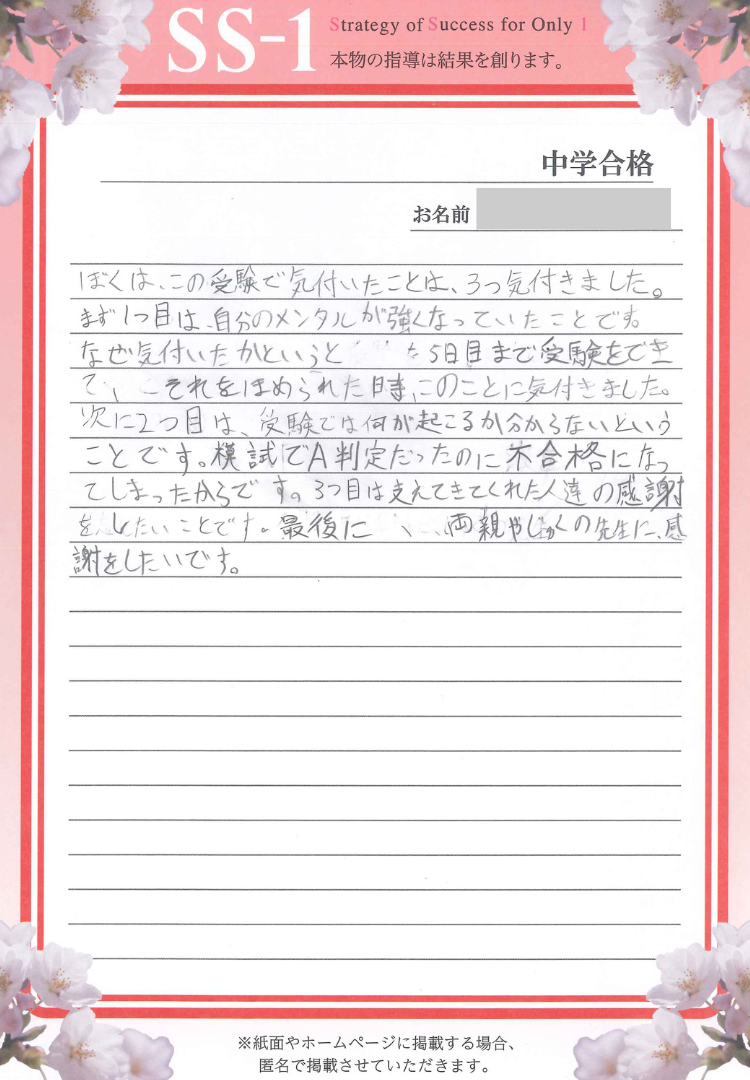 SS-1
Strategy of Success for Only 1
本物の指導は結果を創ります。
中学合格
お名前
ぼくは、この受験で気付いたことは、3つ気付きました。
まず1つ目は、自分のメンタルが強くなっていたことです。
なぜ気付いたかというと 5日目まで受験をでき
て、 それをほめられた時、このことに気付きました。
次に2つ目は、受験では何が起こるか分からないという
ことです。模試でA判定だったのに不合格になっ
てしまったからです。3つ目は支えてきてくれた人達の感謝
をしたいことです。最後に 両親やじゅくの先生に、感
謝をしたいです。
※紙面やホームページに掲載する場合、
匿名で掲載させていただきます。